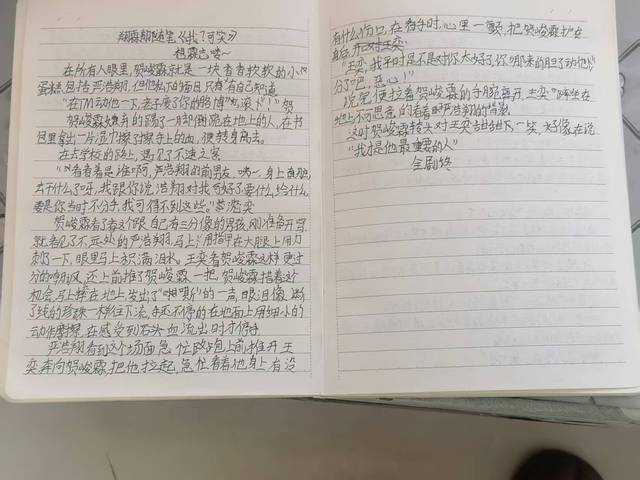 翔霖翔随笔《我？可笑》
想霖忘喽～
在所有人眼里，贺峻霖就是一块香香软软的小
蛋糕，包括严浩翔，但他私下的面目只有有自己知道
"在TM动他一下，老子废了你的胳膊" "滚下" 贺
贺峻霖嫌弃的踢了一脚倒跪在地上的人，在书
包里拿出一片湿巾擦了擦手上的血，便转身离去。
在去学校的路上，遇见了不速之客
"看看是谁啊，严浩翔的前男友，咦～，身上真脏，
去干什么了呀，我跟你说浩翔对我可好了要什么，给什么，
要是你当时不分手，我可得不到这些。"王奕
贺峻霖看了看这个跟自己有三分像的男孩，刚准备开骂，
就看见了不远处的严浩翔，马上用指甲在大腿上用力
刺了一下，眼里马上积满泪水，王奕看贺峻霖这样更过
分的嘲讽，还上前推了贺峻霖一把，贺峻霖借着这个
机会，马上摔在地上发出了"啪唧"的一声，眼泪像断
了线的珍珠一样往下流，手还不停的在地面上用细小的
动作磨擦，在感受到石头血流出时才停手
严浩翔看到这个场面急忙跑上前推开王
奕奔向贺峻霖，把他拉起，急忙看看他身上有没
有什么伤口，在看手时，心里一颤，把贺峻霖护在
身后，开口对王奕：
"王奕，我平时是不是对你太好了，你哪来的胆子动他，
分了吧，恶心！"
说完便拉着贺峻霖的手腕离开，王奕呼坐在
地上不可思意的看着严浩翔的背景
这时贺峻霖转头对王奕甜甜一笑，好像在说
"我才是他最重要的人"
全剧终